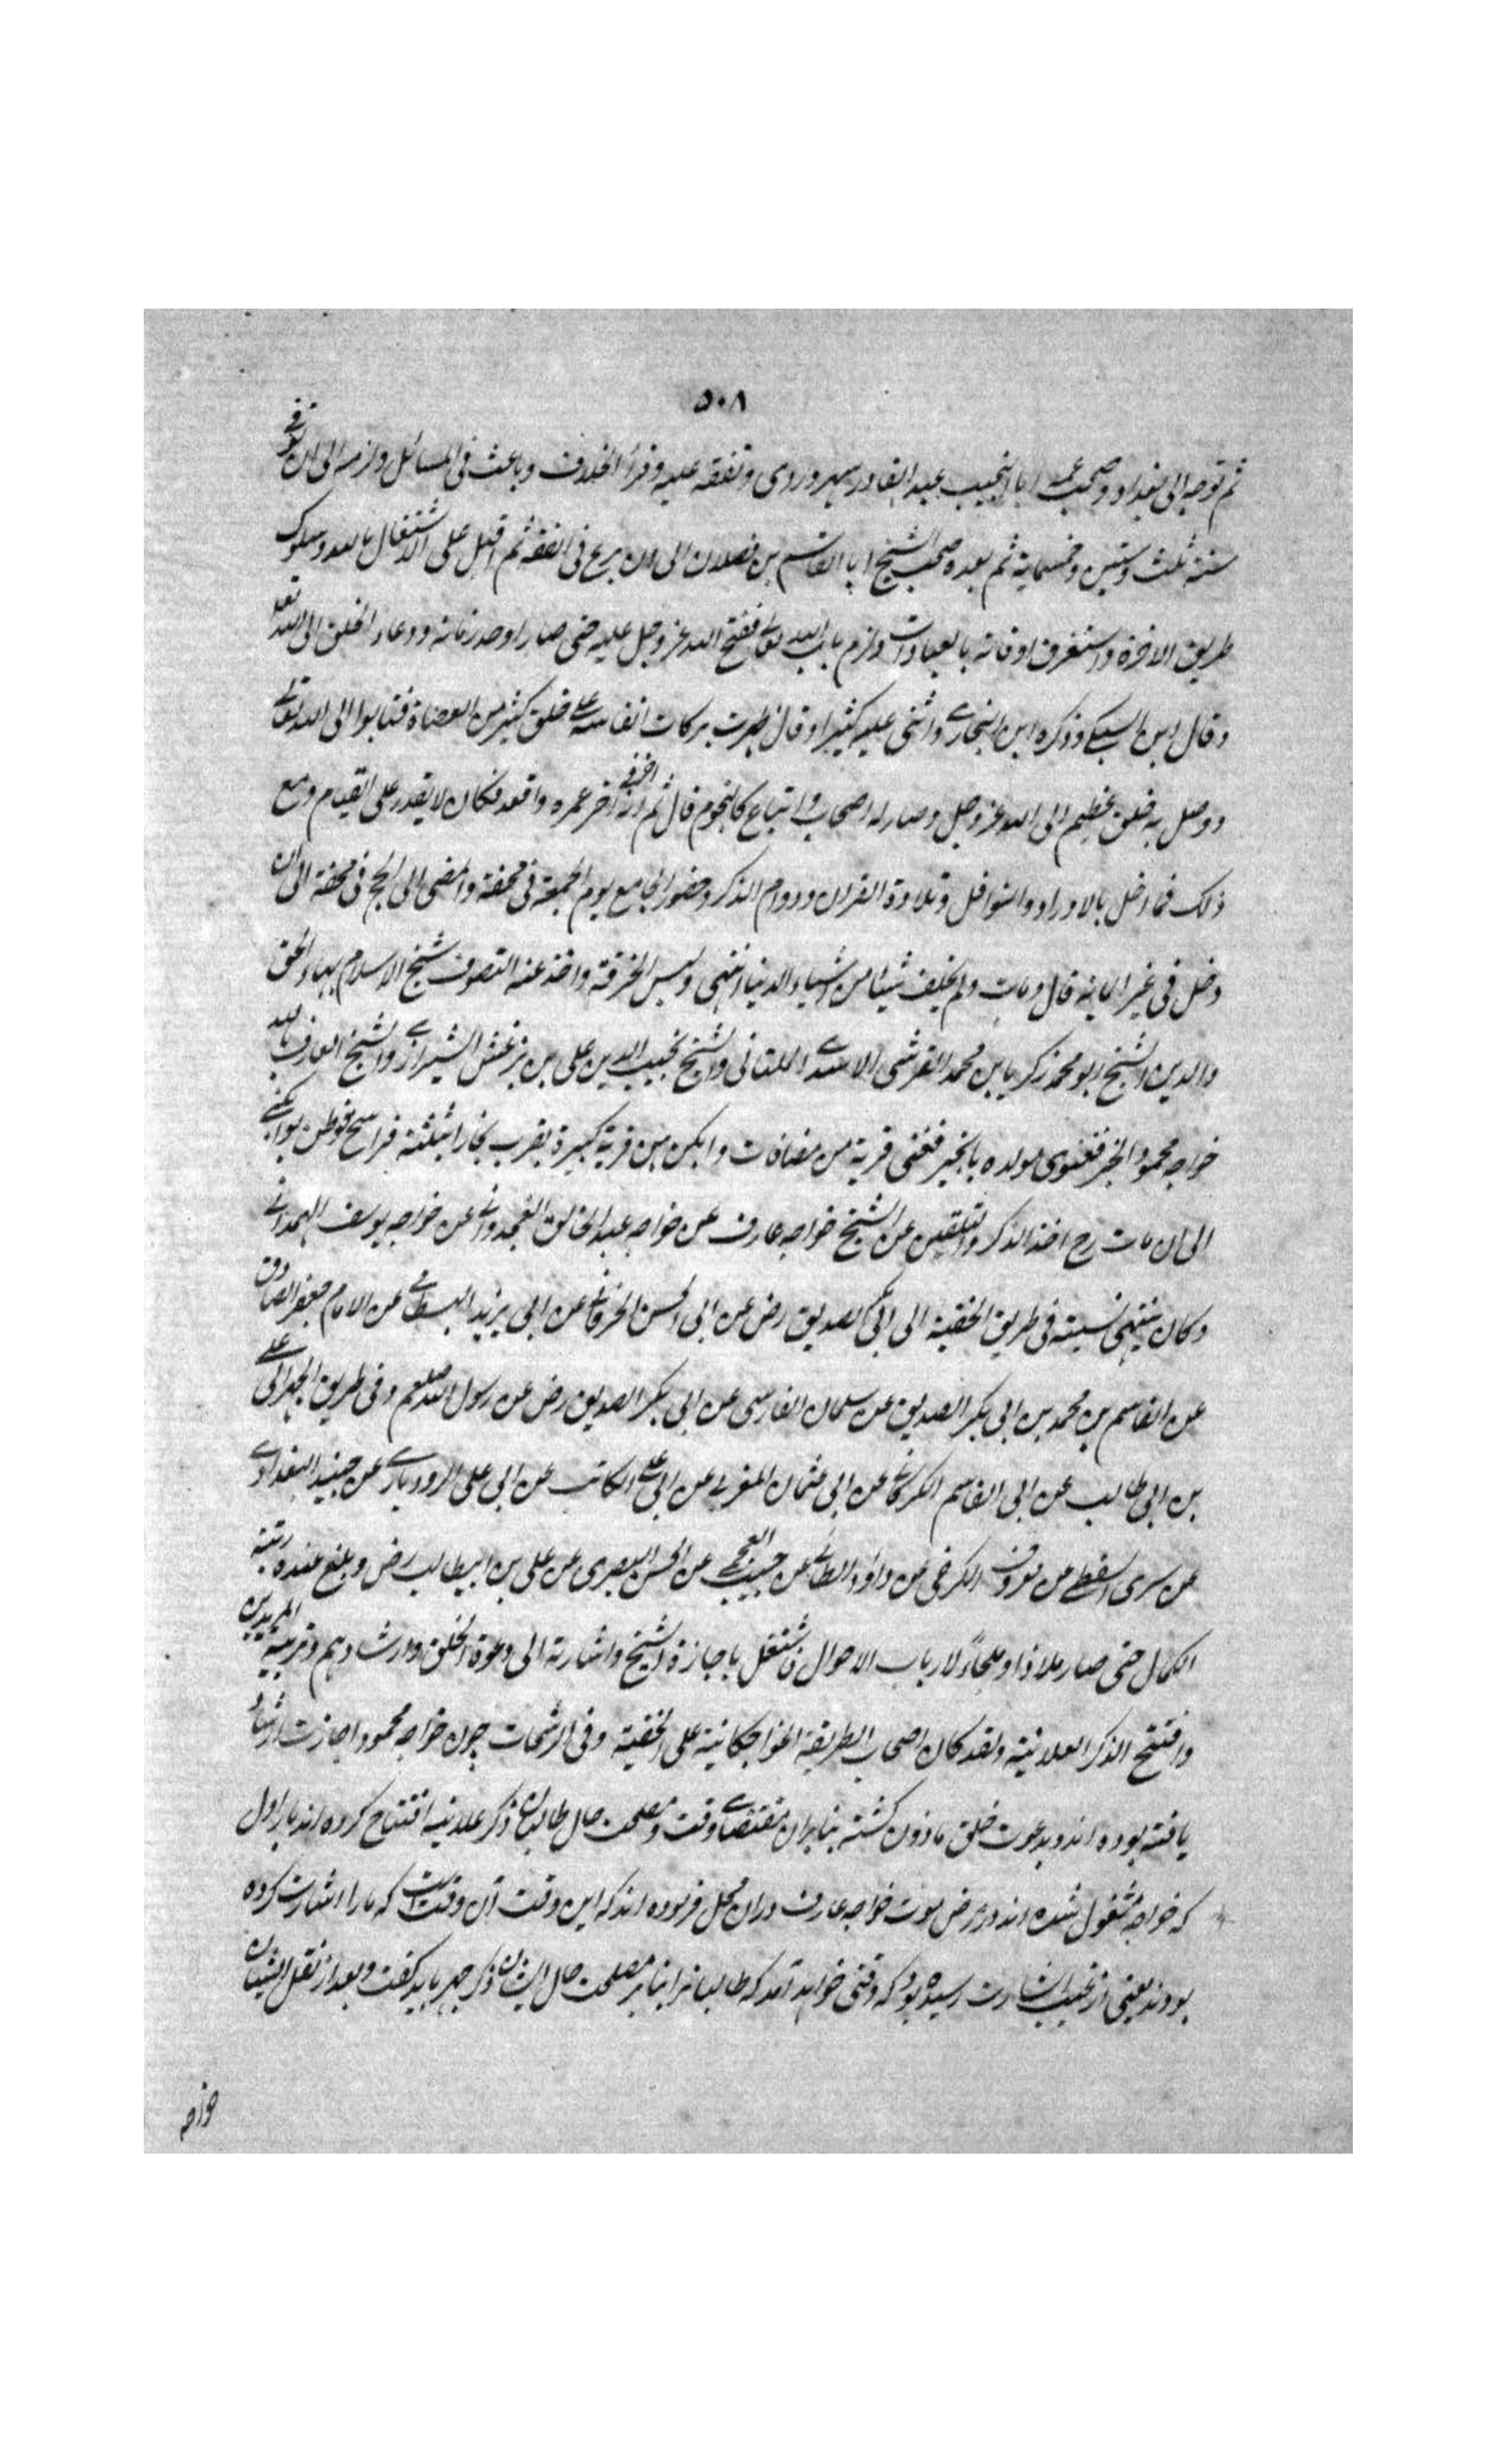 ۵۰۸
ثم توجه الى بغداد وصحب عمه ابا النجيب عبد القادر سهروردى وتفقه عليه وقرأ الخلاف وباحث فى المسائل ولازمه الى ان توفے
سنة ثلث وستين وخمسماية ثم بعده صحب الشيخ ابا القاسم بن فضلان الى ان برع فى الفقه ثم اقبل على الاشتغال بالله وسلوك
طريق الاخرة واستغرق اوقاته بالعبادات ولزم باب الله تعالے ففتح الله عز وجل عليه حتى صار اوحد زمانه ودعاء الخلق الى الله تعه
وقال ابن السبكے وذكره ابن النجارے واثنى عليه كثيرا وقال ظهرت بركات انفاسه علے خلق كثير من العصاة فتابوا الى الله تعالے
ووصل به خلق عظيم الى الله عز وجل وصار له اصحاب واتباع كالنجوم قال ثم انه اخر عمره واقعد فكان لا يقدر على القيام ومع
ذلك فما اخل بالاوراد والنوافل وتلاوة القران ودوام الذكر وحضور الجامع يوم الجمعة فى محفة والمضى الى الحج فى محفة الى ان
دخل فى عشر الماية قال ومات ولم يخلف شيئا من اشياء الدنيا انتهى ولبس الخرقة واخذ عنه التصوف شيخ الاسلام بهاء الحق
والدين الشيخ ابو محمد زكريا بن محمد القرشى الاسدے الملتانى والشيخ نجيب الدين على بن بزغش الشيرازے والشيخ العارف بالله
خواجه محمود انجير فغنوى مولده بانجير فغنى قرية من مضافات وابكن من قرية كبيرة بقرب بخارا بثلثة فراسخ توطن بوابكنے
الى ان مات رح اخذ الذكر والتلقين عن الشيخ خواجه عارف عن خواجه عبد الخالق الغجدوانے عن خواجه يوسف الهمدانے
وكان ينتهى نسبته فى طريق الخفية الى ابى بكر الصديق رض عن ابى الحسن الخرقانے عن ابى يزيد البسطامے عن الامام جعفر الصادق
عن القاسم بن محمد بن ابى بكر الصديق عن سلمان الفارسى عن ابى بكر الصديق رض عن رسول الله صلعم وفى طريق الجهر الى علے
بن ابى طالب عن ابى القاسم الكركانے عن ابى عثمان المغربے عن ابى علے الكاتب عن ابى على الرودبارے عن جنيد البغدادے
عن سرى السقطے عن معروف الكرخى عن داؤد الطائے عن حبيب العجمے عن الحسن البصرى عن على بن ابيطالب رض وبلغ عنده رتبة
الكمال حتى صار ملاذا وملجاءً لارباب الاحوال فاشتغل باجازة الشيخ واشارته الى دعوة الخلق وارشادهم وتربية المريدين
وافتتح الذكر العلانية ولقد كان اصحاب الطريقة الخواجكانية على الخفية وفى الرشحات چون خواجه محمود اجازت ارشاد
يافته بوده اند وبدعوت خلق ماذون گشته بنابران مقتضاے وقت ومصلحت حال طالبان ذكر علانيه افتتاح كرده اند بار اول
كه خواجه مشغول شده اند در مرض موت خواجه عارف دران محل فرموده اند كه اين وقت آن وقتست كه مارا اشارت كرده
بودند يعنى از غيب اشارت رسيده بود كه وقتى خواهد آمد كه طالبانرا بنابر مصلحت حال ايشان ذكر جهر بايد گفت وبعد از نقل ايشان
خواجه